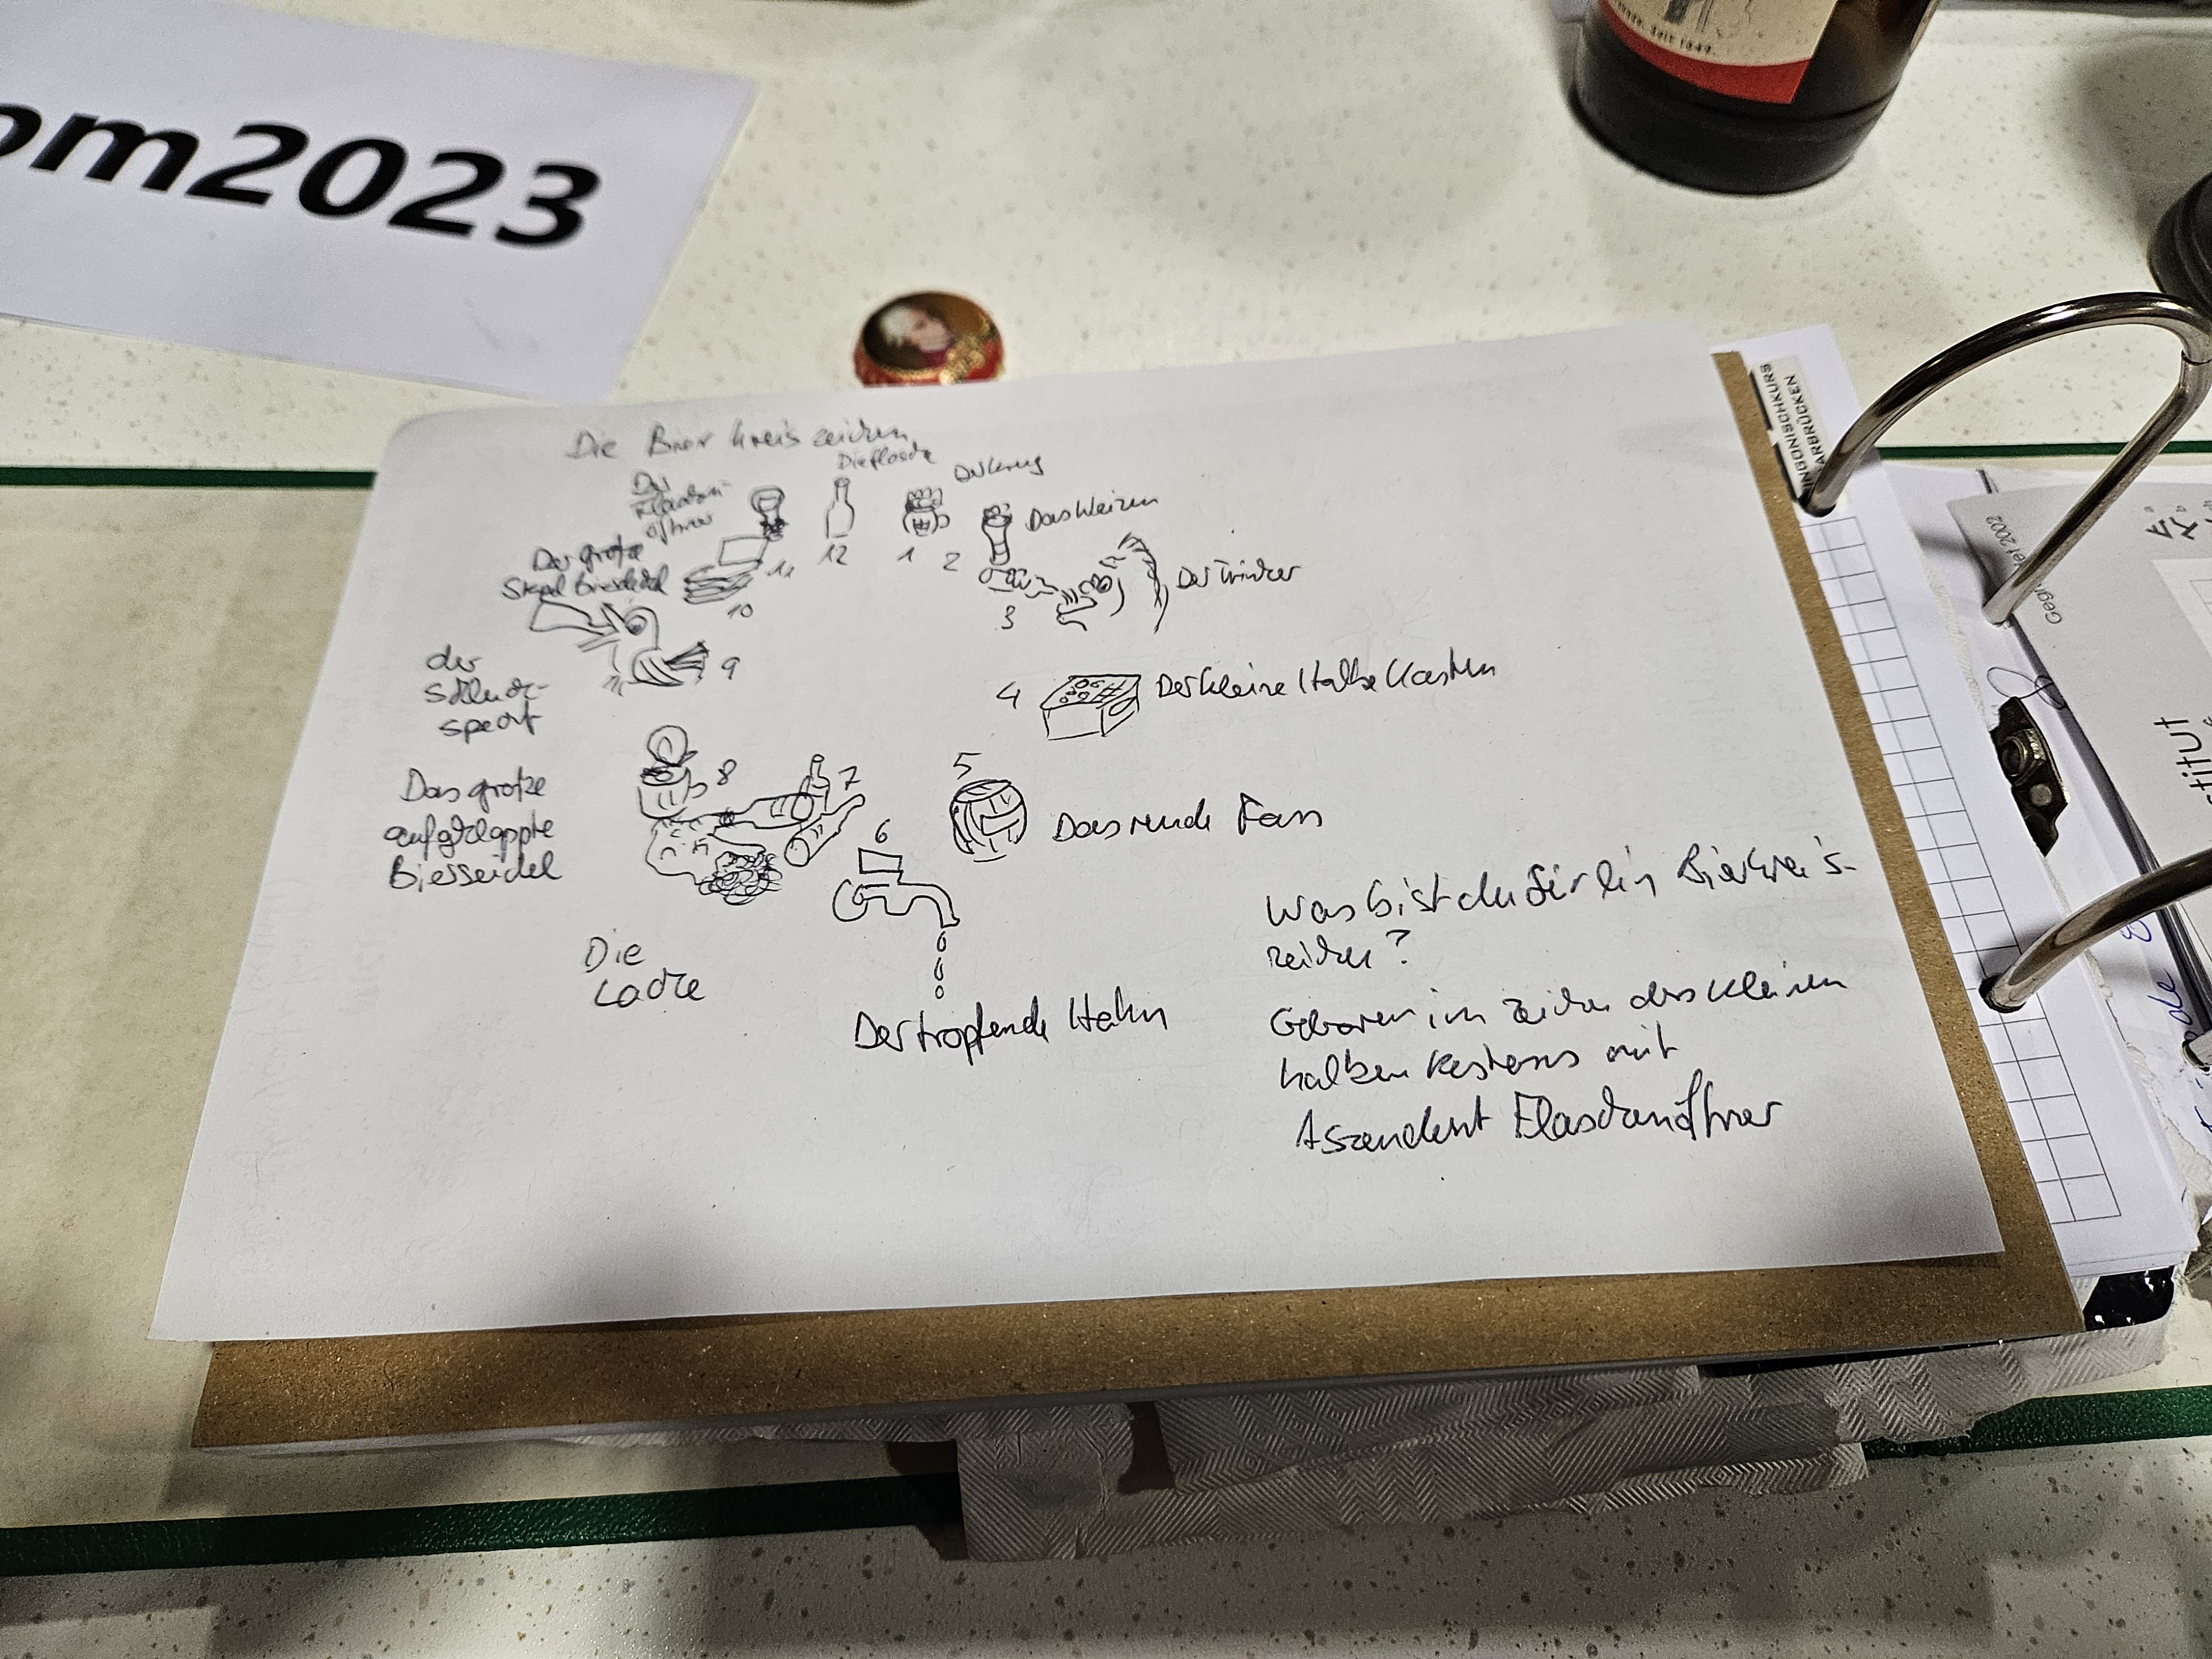 om2023
seit 1849.
Die Bierkreiszeichen
Die Flasche
Der Krug
Der
Flaschen-
öffner
Das Weizen
Der große
Stapel Bierdeckel
11
12
1
2
Der Trinker
10
3
der
Schluck-
specht
9
4
Der kleine Halbe Kasten
Das große
aufgeklappte
Bierseidel
8
7
5
6
Das runde Fass
Die
Lache
Der tropfende Hahn
Was bist du für ein Bierkreis-
zeichen?
Geboren im Zeichen des kleinen
halben Kastens mit
Aszendent Flaschenöffner
INGONISCHKURS
ARBRÜCKEN
2002
stitut